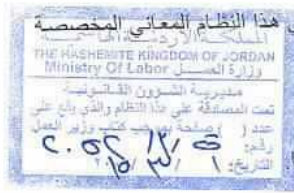 هذا النظام المعاني المخصصة
المملكة الأردنية الهاشمية
THE HASHEMITE KINGDOM OF JORDAN
Ministry Of Labor وزارة العمل
مديرية الشؤون القانونية
تمت المصادقة على هذا النظام والذي يقع على
عدد ( ) صفحة بموجب كتاب وزير العمل
رقم:
التاريخ: